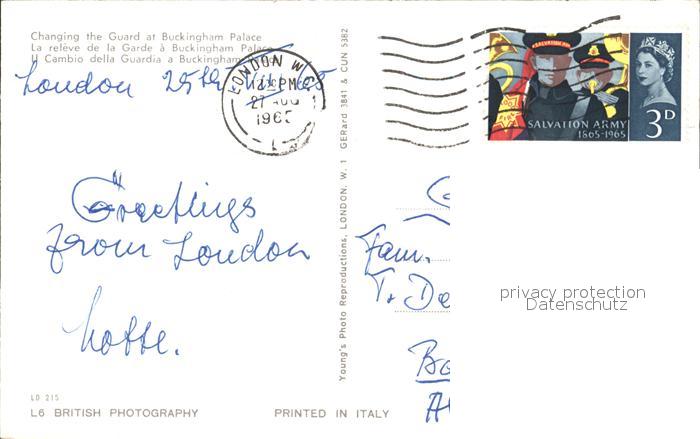 Changing the Guard at Buckingham Palace
La relève de la Garde à Buckingham Palace
Il Cambio della Guardia a Buckingham
London 25th
LONDON W.C.
12 PM
27 AUG
1965
SALVATION ARMY
SALVATION ARMY
1865-1965
3D
Greetings
from London
Lotte.
Fam.
T. De
privacy protection
Datenschutz
Young's Photo Reproductions, LONDON, W. 1 GERrard 3841 & CUN 5382
LO 215
L6 BRITISH PHOTOGRAPHY
PRINTED IN ITALY